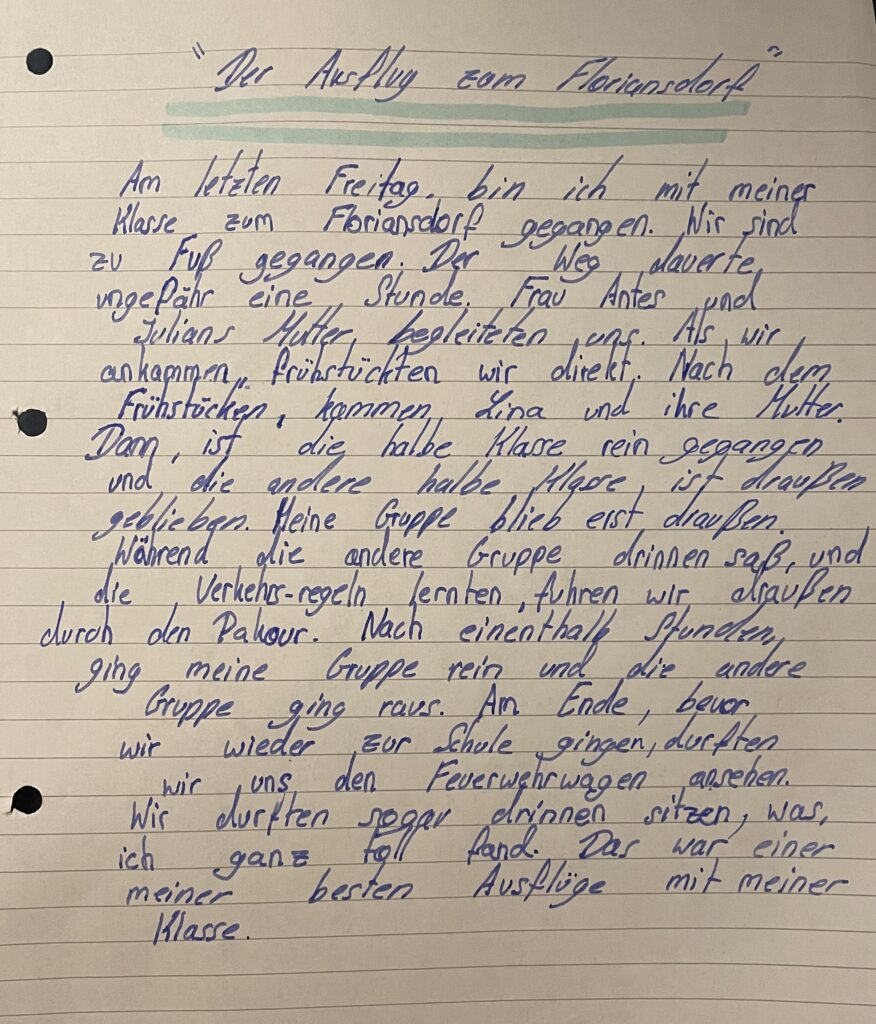 "Der Ausflug zum Floriansdorf"
Am letzten Freitag, bin ich mit meiner
Klasse zum Floriansdorf gegangen. Wir sind
zu Fuß gegangen. Der Weg dauerte
ungefähr eine Stunde. Frau Antes und
Julians Mutter, begleiteten uns. Als wir
ankammen, frühstückten wir direkt. Nach dem
Frühstücken, kammen Lina und ihre Mutter.
Dann, ist die halbe Klasse rein gegangen
und die andere halbe Klasse, ist draußen
geblieben. Meine Gruppe blieb erst draußen.
Während die andere Gruppe drinnen saß, und
die Verkehrs-regeln lernten, fuhren wir draußen
durch den Pakour. Nach einenthalb Stunden,
ging meine Gruppe rein und die andere
Gruppe ging raus. Am Ende, bevor
wir wieder zur Schule gingen, durften
wir uns den Feuerwehrwagen ansehen.
Wir durften sogar drinnen sitzen, was,
ich ganz toll fand. Das war einer
meiner besten Ausflüge mit meiner
Klasse.